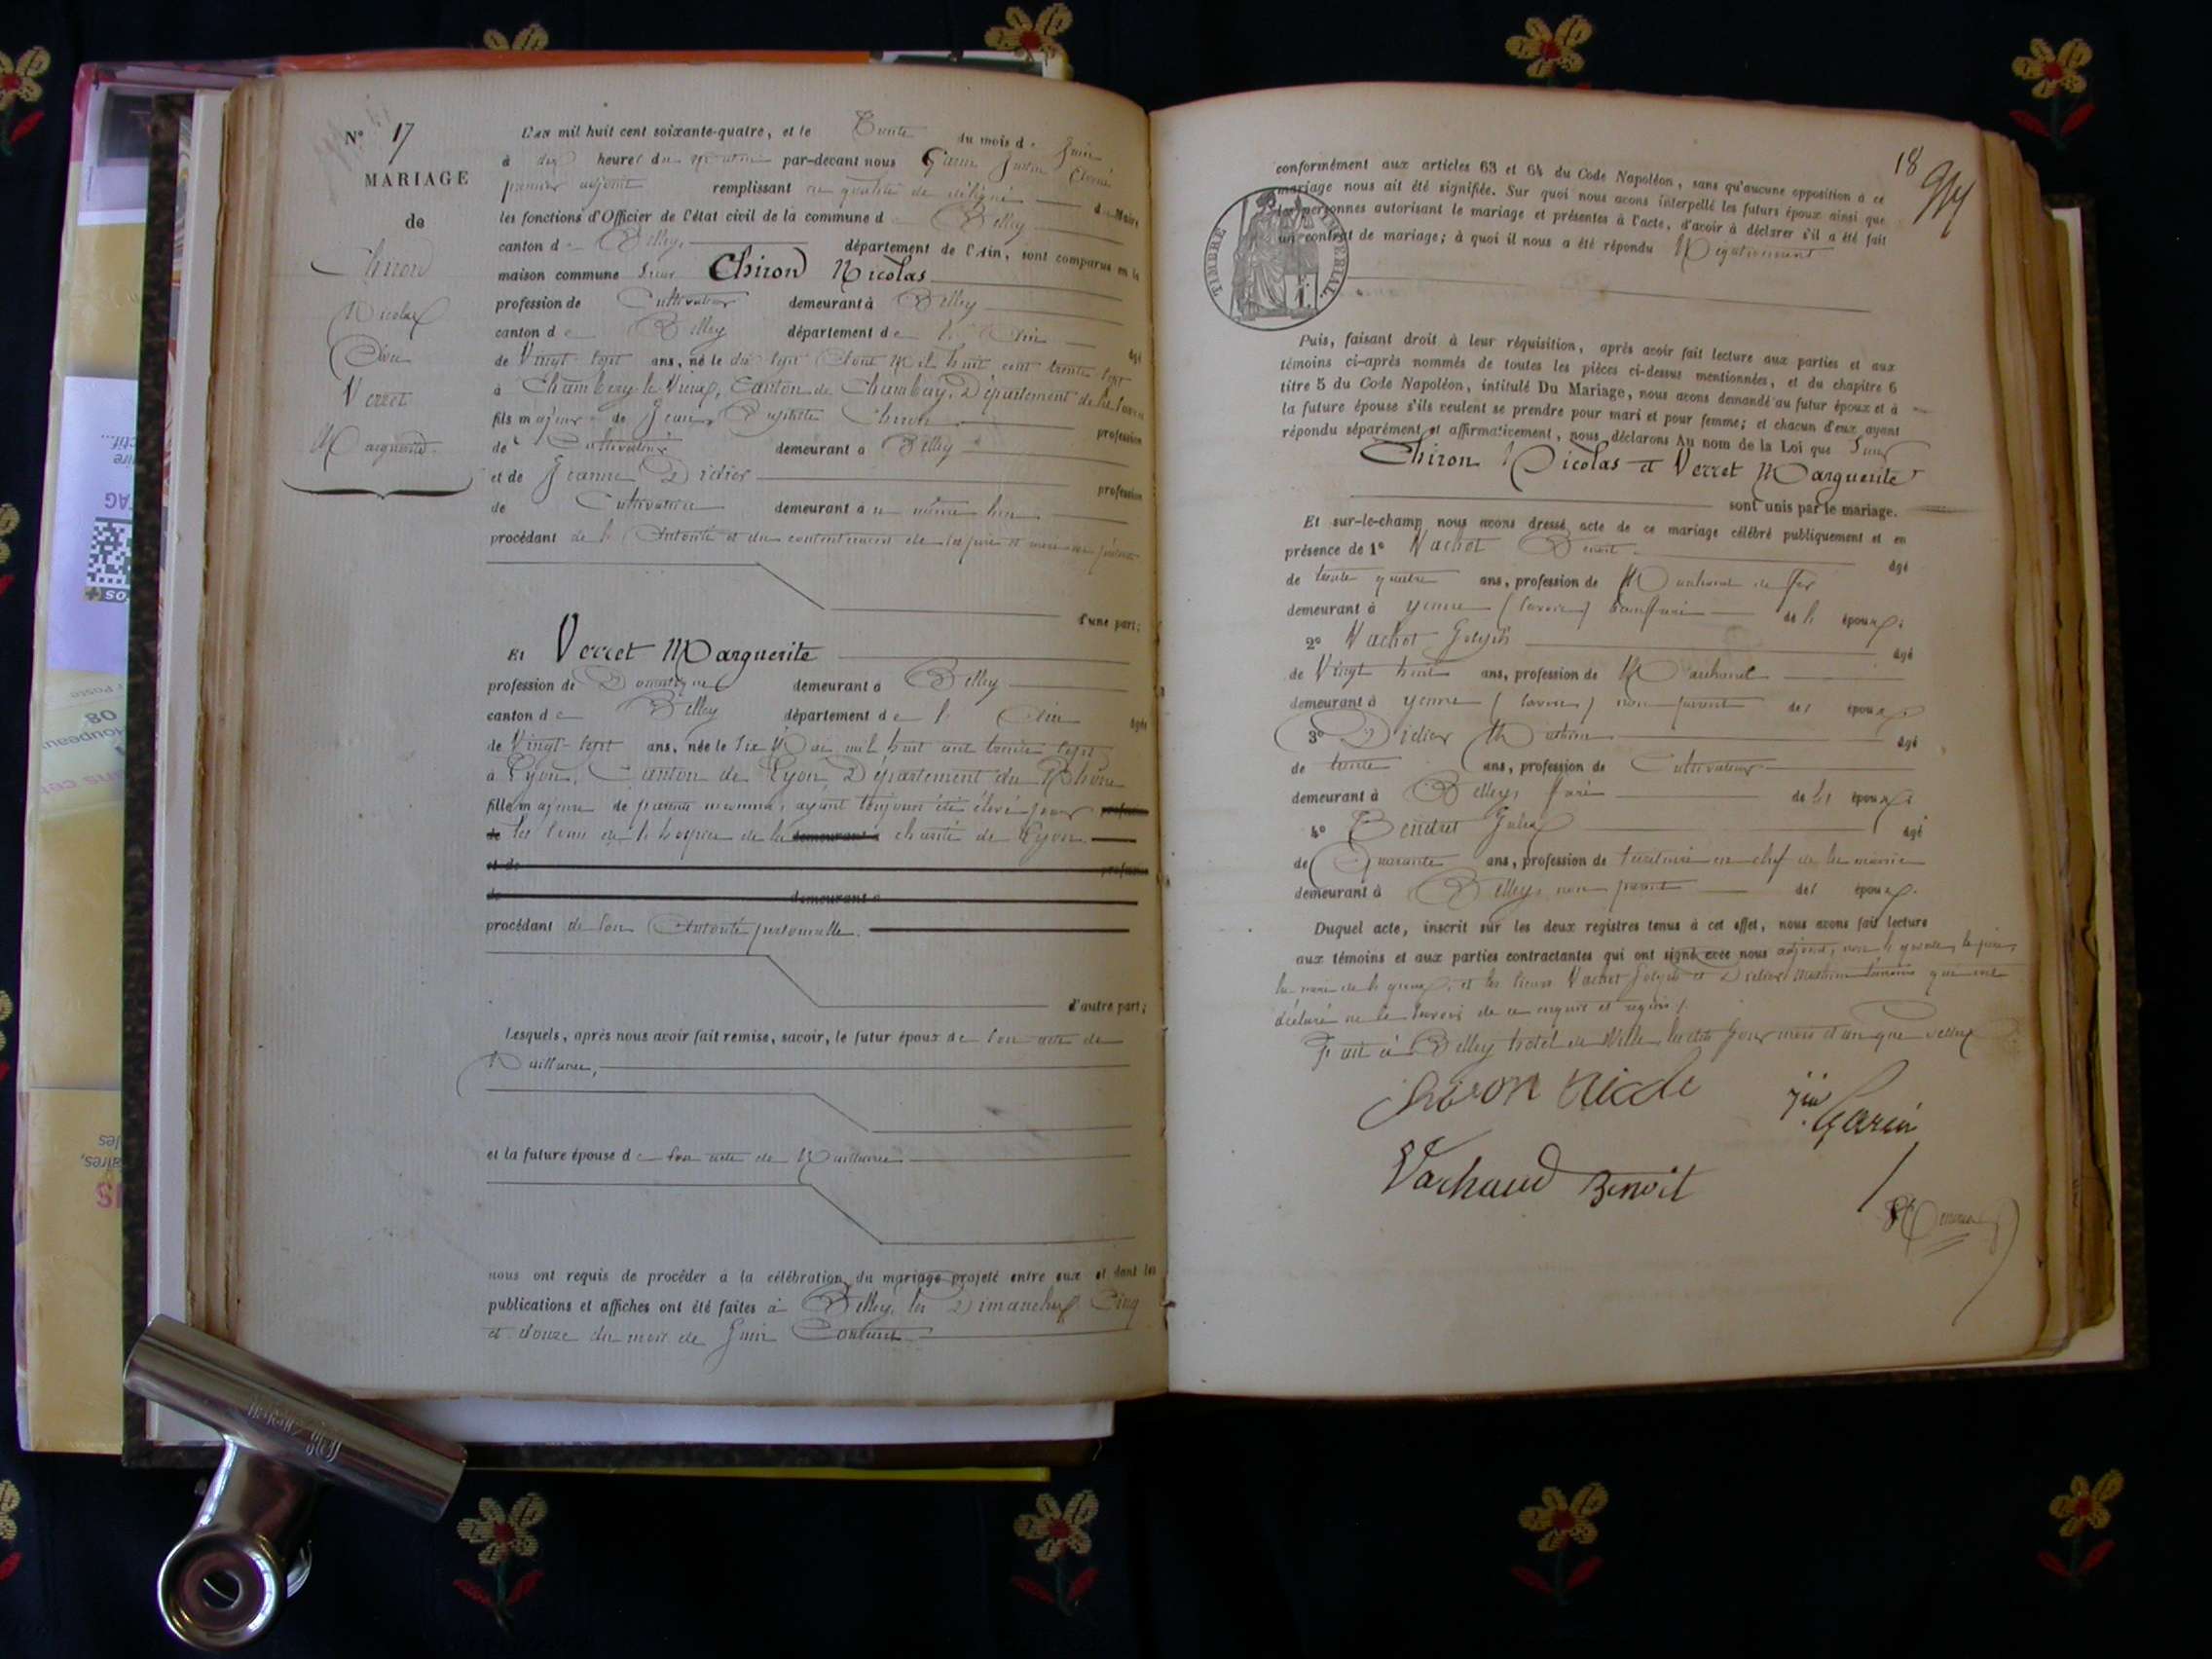 N° 17
MARIAGE
de
Chiron
Nicolas
Avec
Verret
Marguerite
L'an mil huit cent soixante-quatre, et le Trente du mois de Juin
à dix heures du matin par-devant nous Garin
premier adjoint remplissant en qualité de délégué du Maire
les fonctions d'Officier de l'état civil de la commune de Belley
canton de Belley département de l'Ain, sont comparus en la
maison commune Sieur Chiron Nicolas
profession de Cultivateur demeurant à Belley
canton de Belley département de l'Ain âgé
de Vingt-sept ans, né le dix sept Août mil huit cent trente sept
à Chambéry-le-Vieux, Canton de Chambéry, Département de la Savoie
fils majeur de Jean Baptiste Chiron profession
de Cultivateur demeurant à Belley
et de Jeanne Didier profession
de Cultivatrice demeurant à u même lieu
procédant de l'Autorité et du consentement de ses père et mère ici présents
d'une part;
Et Verret Marguerite
profession de Domestique demeurant à Belley
canton de Belley département de l'Ain âgée
de Vingt-sept ans, née le six Mai mil huit cent trente sept
à Lyon, Canton de Lyon, Département du Rhône
fille majeure de parents inconnus, ayant toujours été élevé par profession
de les soins de l'hospice de la demeurant à charité de Lyon
et de profession
de demeurant à
procédant de son Autorité personnelle.
d'autre part;
Lesquels, après nous avoir fait remise, savoir, le futur époux de son acte de
Naissance,
et la future épouse de son acte de Naissance
nous ont requis de procéder à la célébration du mariage projeté entre eux et dont les
publications et affiches ont été faites à Belley, les Dimanches Cinq
et douze du mois de Juin Courant
18
conformément aux articles 63 et 64 du Code Napoléon, sans qu'aucune opposition à ce
mariage nous ait été signifiée. Sur quoi nous avons interpellé les futurs époux ainsi que
les personnes autorisant le mariage et présentes à l'acte, d'avoir à déclarer s'il a été fait
un contrat de mariage; à quoi il nous a été répondu Négativement
TIMBRE IMPÉRIAL.
Puis, faisant droit à leur réquisition, après avoir fait lecture aux parties et aux
témoins ci-après nommés de toutes les pièces ci-dessus mentionnées, et du chapitre 6
titre 5 du Code Napoléon, intitulé Du Mariage, nous avons demandé au futur époux et à
la future épouse s'ils veulent se prendre pour mari et pour femme; et chacun d'eux ayant
répondu séparément et affirmativement, nous déclarons Au nom de la Loi que Sieur
Chiron Nicolas et Verret Marguerite
sont unis par le mariage.
Et sur-le-champ nous avons dressé acte de ce mariage célébré publiquement et en
présence de 1° Vachot Benoit âgé
de trente quatre ans, profession de Marchand de fer
demeurant à Yenne (Savoie) de l'époux
2° Vachot Joseph âgé
de Vingt huit ans, profession de Marchand
demeurant à Yenne (Savoie) non parent des époux
3° Didier Mathieu âgé
de trente ans, profession de Cultivateur
demeurant à Belley, de l'époux
4° Bendret Jules âgé
de Quarante ans, profession de secrétaire en chef de la mairie
demeurant à Belley, non parent des époux.
Duquel acte, inscrit sur les deux registres tenus à cet effet, nous avons fait lecture
aux témoins et aux parties contractantes qui ont signé avec nous adjoint, non l'épouse, le père,
la mère de l'époux, et les sieurs Vachot Joseph et Didier Mathieu témoins qui ont
déclaré ne le savoir de ce enquis et requis.
Fait à Belley hôtel de Ville, lesdits jour mois et an que dessus
Chiron Nicola
Garin
Vachaud Benoit